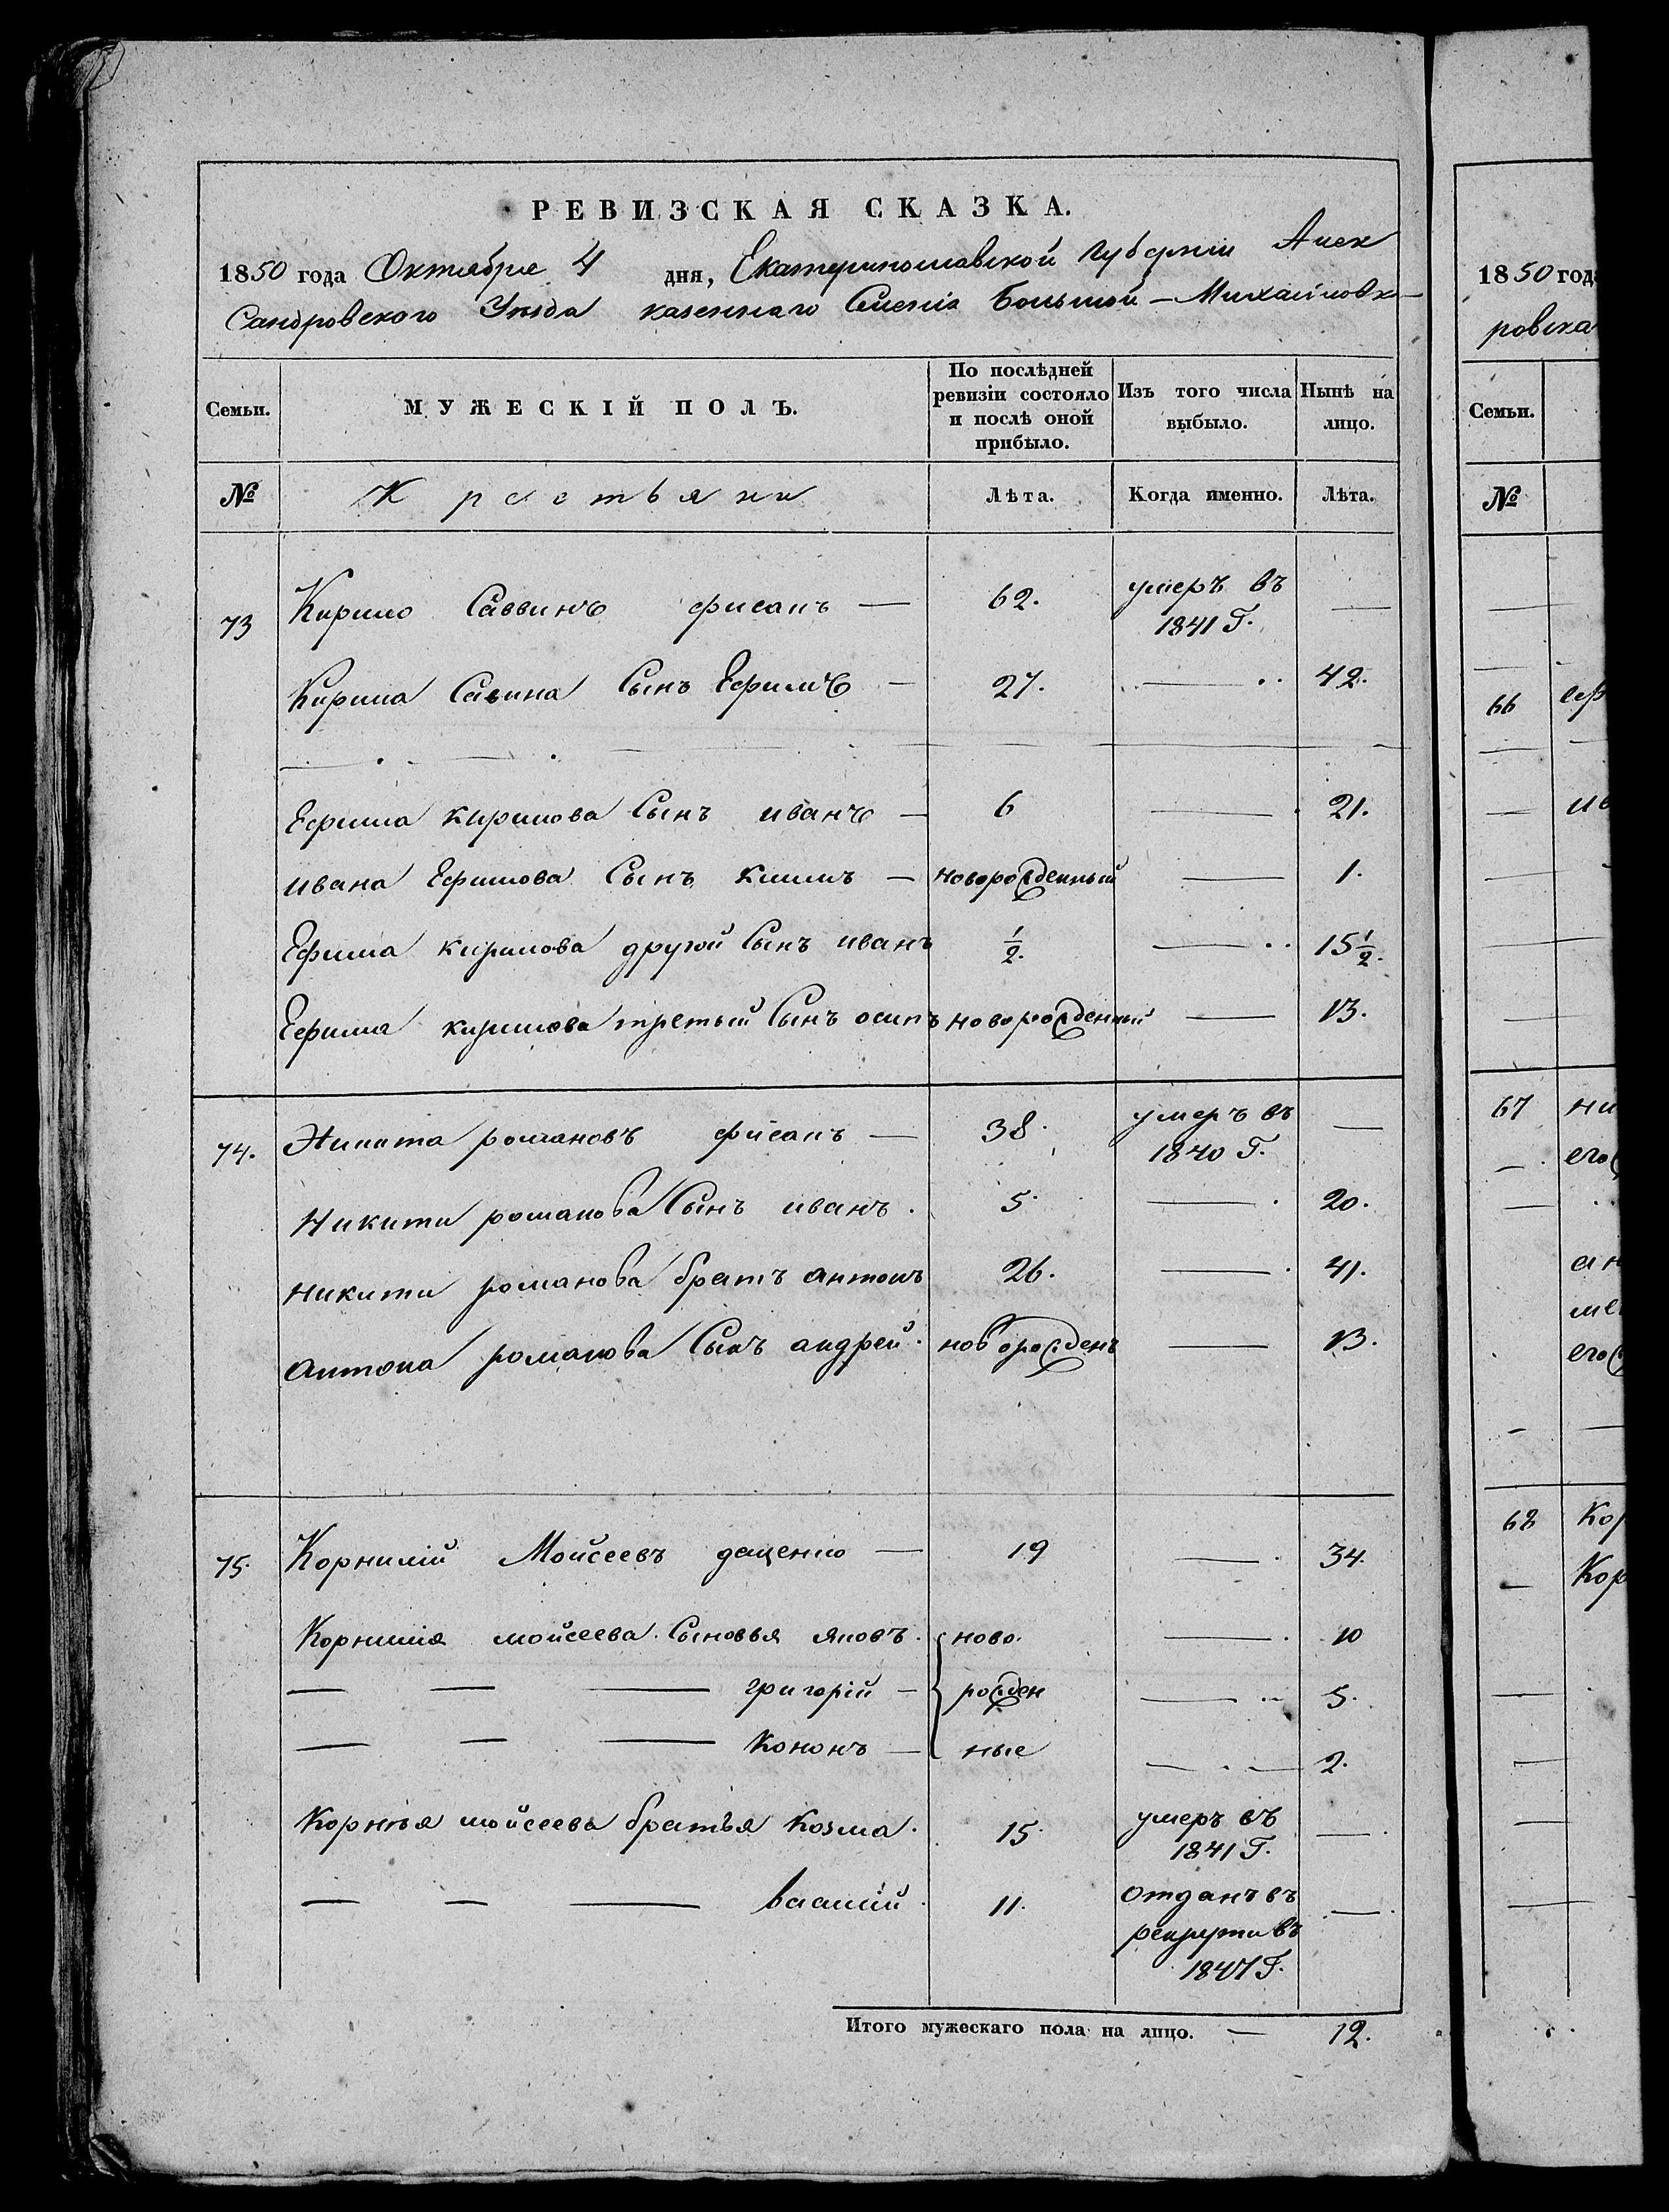 РЕВИЗСКАЯ СКАЗКА.
1850 года Октября 4 дня, Екатеринославской губерніи Алек
сандровского Уѣзда казенного Селенія Большой - Михайловки
Семьи.
МУЖЕСКІЙ ПОЛЪ.
По послѣдней ревизіи состояло и послѣ оной прибыло.
Изъ того числа выбыло.
Нынѣ на лицо.
№ Крестьяни Лѣта. Когда именно. Лѣта.
73 Кирило Саввинъ фисанъ — 62. умеръ въ —
1841 Г.
Кирила Савина Сынъ Ефимъ — 27. — 42.
Ефима кирилова Сынъ иванъ — 6 — 21.
ивана Ефимова Сынъ климъ — новорожденный — 1.
Ефима кирилова другой Сынъ иванъ ½. — 15½.
Ефима кирилова третьий Сынъ осипъ новорожденный — 13.
74. Никита романовъ фисанъ — 38. умеръ въ —
1840 Г.
Никити романова Сынъ иванъ. 5. — 20.
никити романова братъ антонъ 26. — 41.
антона романова Сынъ андрей. новорожденъ — 13.
75. Корнилій Моисеевъ даценко — 19 — 34.
Корнилія мойсеева Сыновья яковъ. ново. — 10
— — — григорій — рожден — 5.
— — — Кононъ — ные — 2.
Корнѣя мойсеева братья козма. 15. умеръ въ —
1841 Г.
— — — василий. 11. отданъ въ —
рекрути въ
1847 Г.
Итого мужескаго пола на лицо. — 12.
1850 года
ровска
Семьи.
№
66 еф
ив
67 ни
его
ан
его
68 Кор
Кор